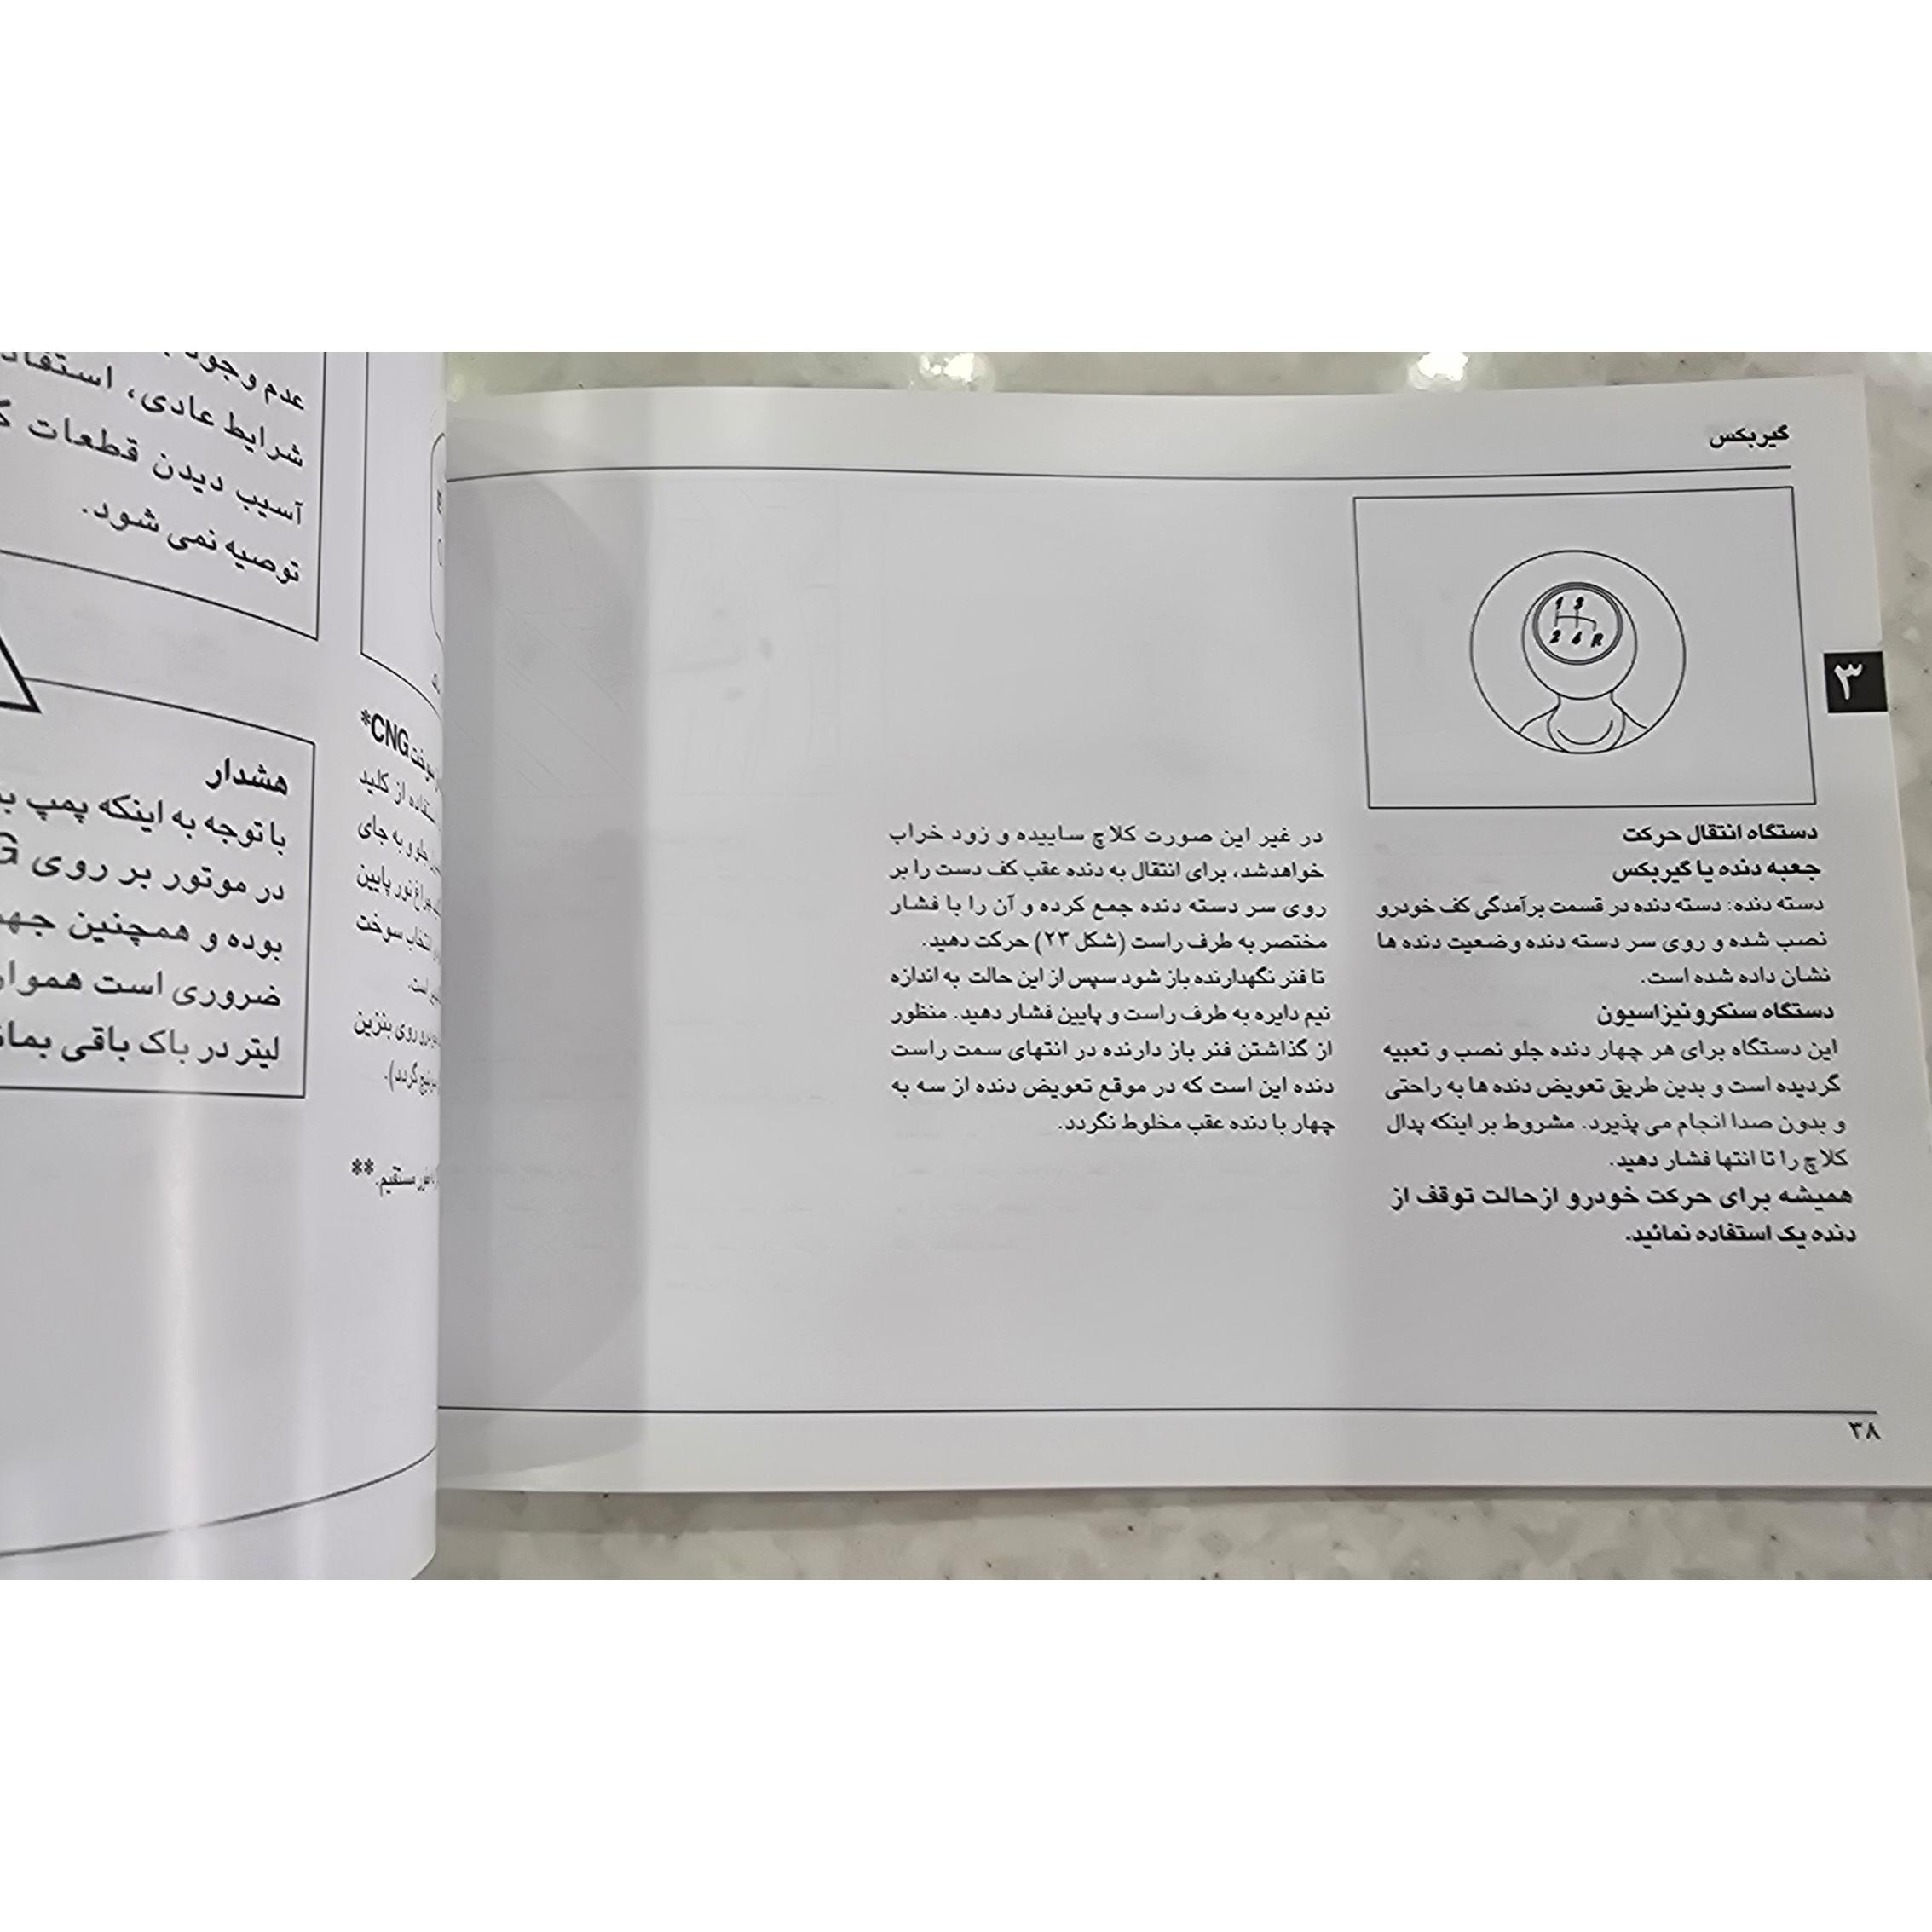 گیربکس
1 3
2 4 R
۳
دستگاه انتقال حرکت
جعبه دنده یا گیربکس
دسته دنده: دسته دنده در قسمت برآمدگی کف خودرو
نصب شده و روی سر دسته دنده وضعیت دنده ها
نشان داده شده است.
دستگاه سنکرونیزاسیون
این دستگاه برای هر چهار دنده جلو نصب و تعبیه
گردیده است و بدین طریق تعویض دنده ها به راحتی
و بدون صدا انجام می پذیرد. مشروط بر اینکه پدال
کلاچ را تا انتها فشار دهید.
همیشه برای حرکت خودرو ازحالت توقف از
دنده یک استفاده نمائید.
در غیر این صورت کلاچ ساییده و زود خراب
خواهدشد، برای انتقال به دنده عقب کف دست را بر
روی سر دسته دنده جمع کرده و آن را با فشار
مختصر به طرف راست (شکل ۲۳) حرکت دهید.
تا فنر نگهدارنده باز شود سپس از این حالت به اندازه
نیم دایره به طرف راست و پایین فشار دهید. منظور
از گذاشتن فنر باز دارنده در انتهای سمت راست
دنده این است که در موقع تعویض دنده از سه به
چهار با دنده عقب مخلوط نگردد.
۳۸
سوخت CNG*
از کلید
جلو و به جای
چراغ نور پایین
انتخاب سوخت
است.
روی بنزین
گردد).
مستقیم.**
عدم وجود
شرایط عادی، استفاده
آسیب دیدن قطعات
توصیه نمی شود.
هشدار
با توجه به اینکه پمپ
در موتور بر روی
بوده و همچنین
ضروری است
لیتر در باک باقی